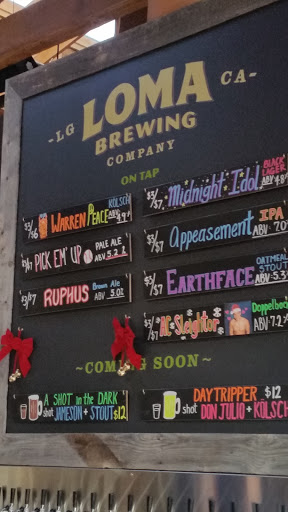 LG LOMA CA
BREWING
COMPANY
ON TAP
$3/
$6 WARREN PEACE KÖLSCH
ABV
PICK EM' UP PALE ALE
ABV 5.2
$3/$7 RUPHUS Brown Ale
ABV 5.0%
$3/
$7 Midnight Idol BLACK
LAGER
ABV
$3/
$7 Appeasement IPA
ABV
$3/
$7 EARTHFACE OATMEAL
STOUT
ABV 5.3
$3/
$7 Al Sleightor Doppelbock
ABV 7.2
~COMING SOON~
A SHOT in the DARK
shot JAMESON + STOUT $12
DAYTRIPPER $12
shot DON JULIO + KÖLSCH